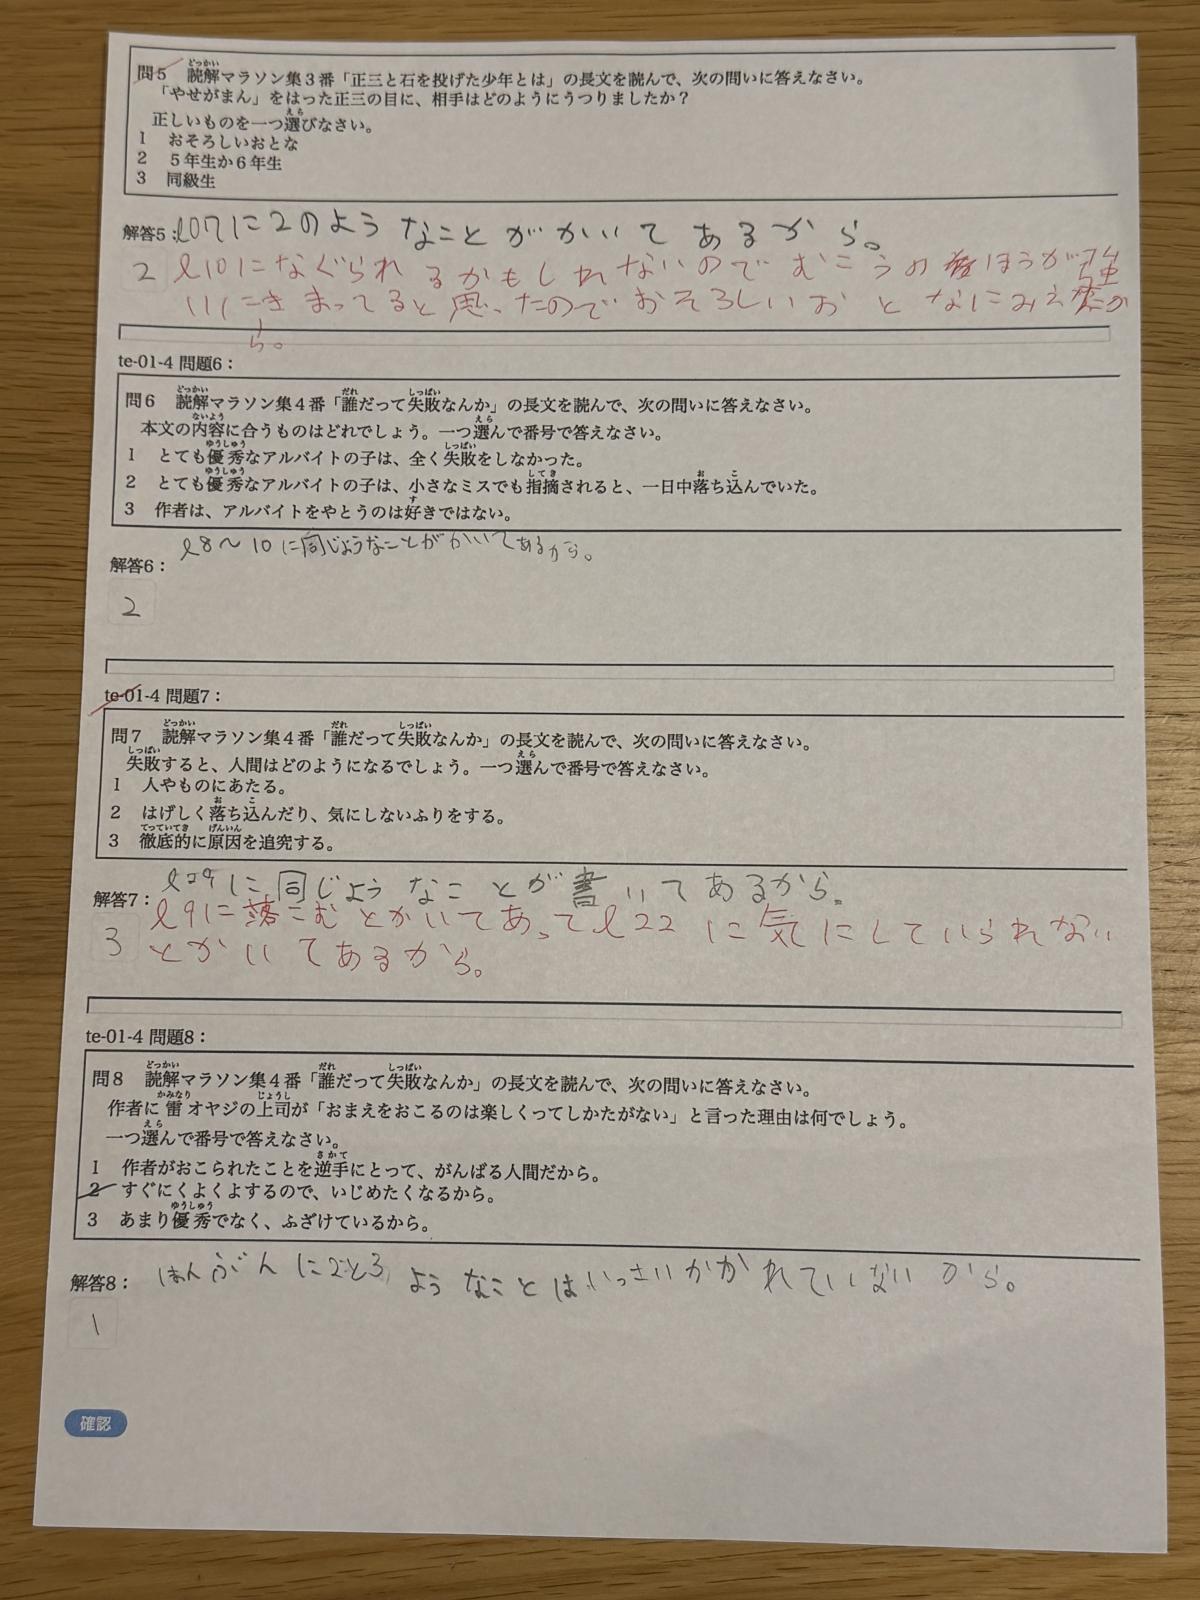 問5 読解マラソン集3番「正三と石を投げた少年とは」の長文を読んで、次の問いに答えなさい。
「やせがまん」をはった正三の目に、相手はどのようにうつりましたか?
正しいものを一つ選びなさい。
1 おそろしいおとな
2 5年生か6年生
3 同級生
解答5:l07に2のようなことがかいてあるから。
2 l10になぐられるかもしれないのでむこうのほうが強
いにきまってると思ったのでおそろしいおとなにみえたか
ら。
te-01-4 問題6:
問6 読解マラソン集4番「誰だって失敗なんか」の長文を読んで、次の問いに答えなさい。
本文の内容に合うものはどれでしょう。一つ選んで番号で答えなさい。
1 とても優秀なアルバイトの子は、全く失敗をしなかった。
2 とても優秀なアルバイトの子は、小さなミスでも指摘されると、一日中落ち込んでいた。
3 作者は、アルバイトをやとうのは好きではない。
l8〜10に同じようなことがかいてあるから。
解答6:
2
te-01-4 問題7:
問7 読解マラソン集4番「誰だって失敗なんか」の長文を読んで、次の問いに答えなさい。
失敗すると、人間はどのようになるでしょう。一つ選んで番号で答えなさい。
1 人やものにあたる。
2 はげしく落ち込んだり、気にしないふりをする。
3 徹底的に原因を追究する。
解答7:l29に同じようなことが書いてあるから。
3 l9に落こむとかいてあってl22に気にしていられない
とかいてあるから。
te-01-4 問題8:
問8 読解マラソン集4番「誰だって失敗なんか」の長文を読んで、次の問いに答えなさい。
作者に雷オヤジの上司が「おまえをおこるのは楽しくってしかたがない」と言った理由は何でしょう。
一つ選んで番号で答えなさい。
1 作者がおこられたことを逆手にとって、がんばる人間だから。
2 すぐにくよくよするので、いじめたくなるから。
3 あまり優秀でなく、ふざけているから。
解答8: ほんぶんに2と3ようなことはいっさいかかれていないから。
1
確認